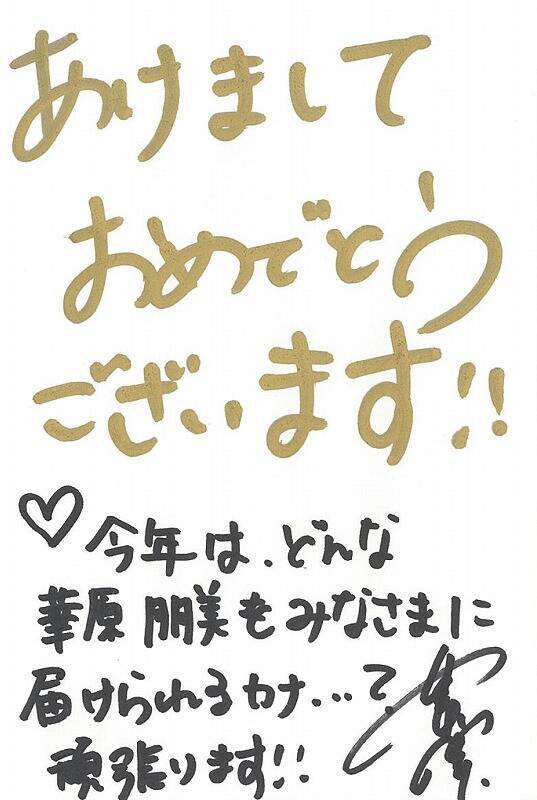 あけまして
おめでとう
ございます!!
♡今年は、どんな
華原朋美をみなさまに
届けられるカナ...?
頑張ります!!